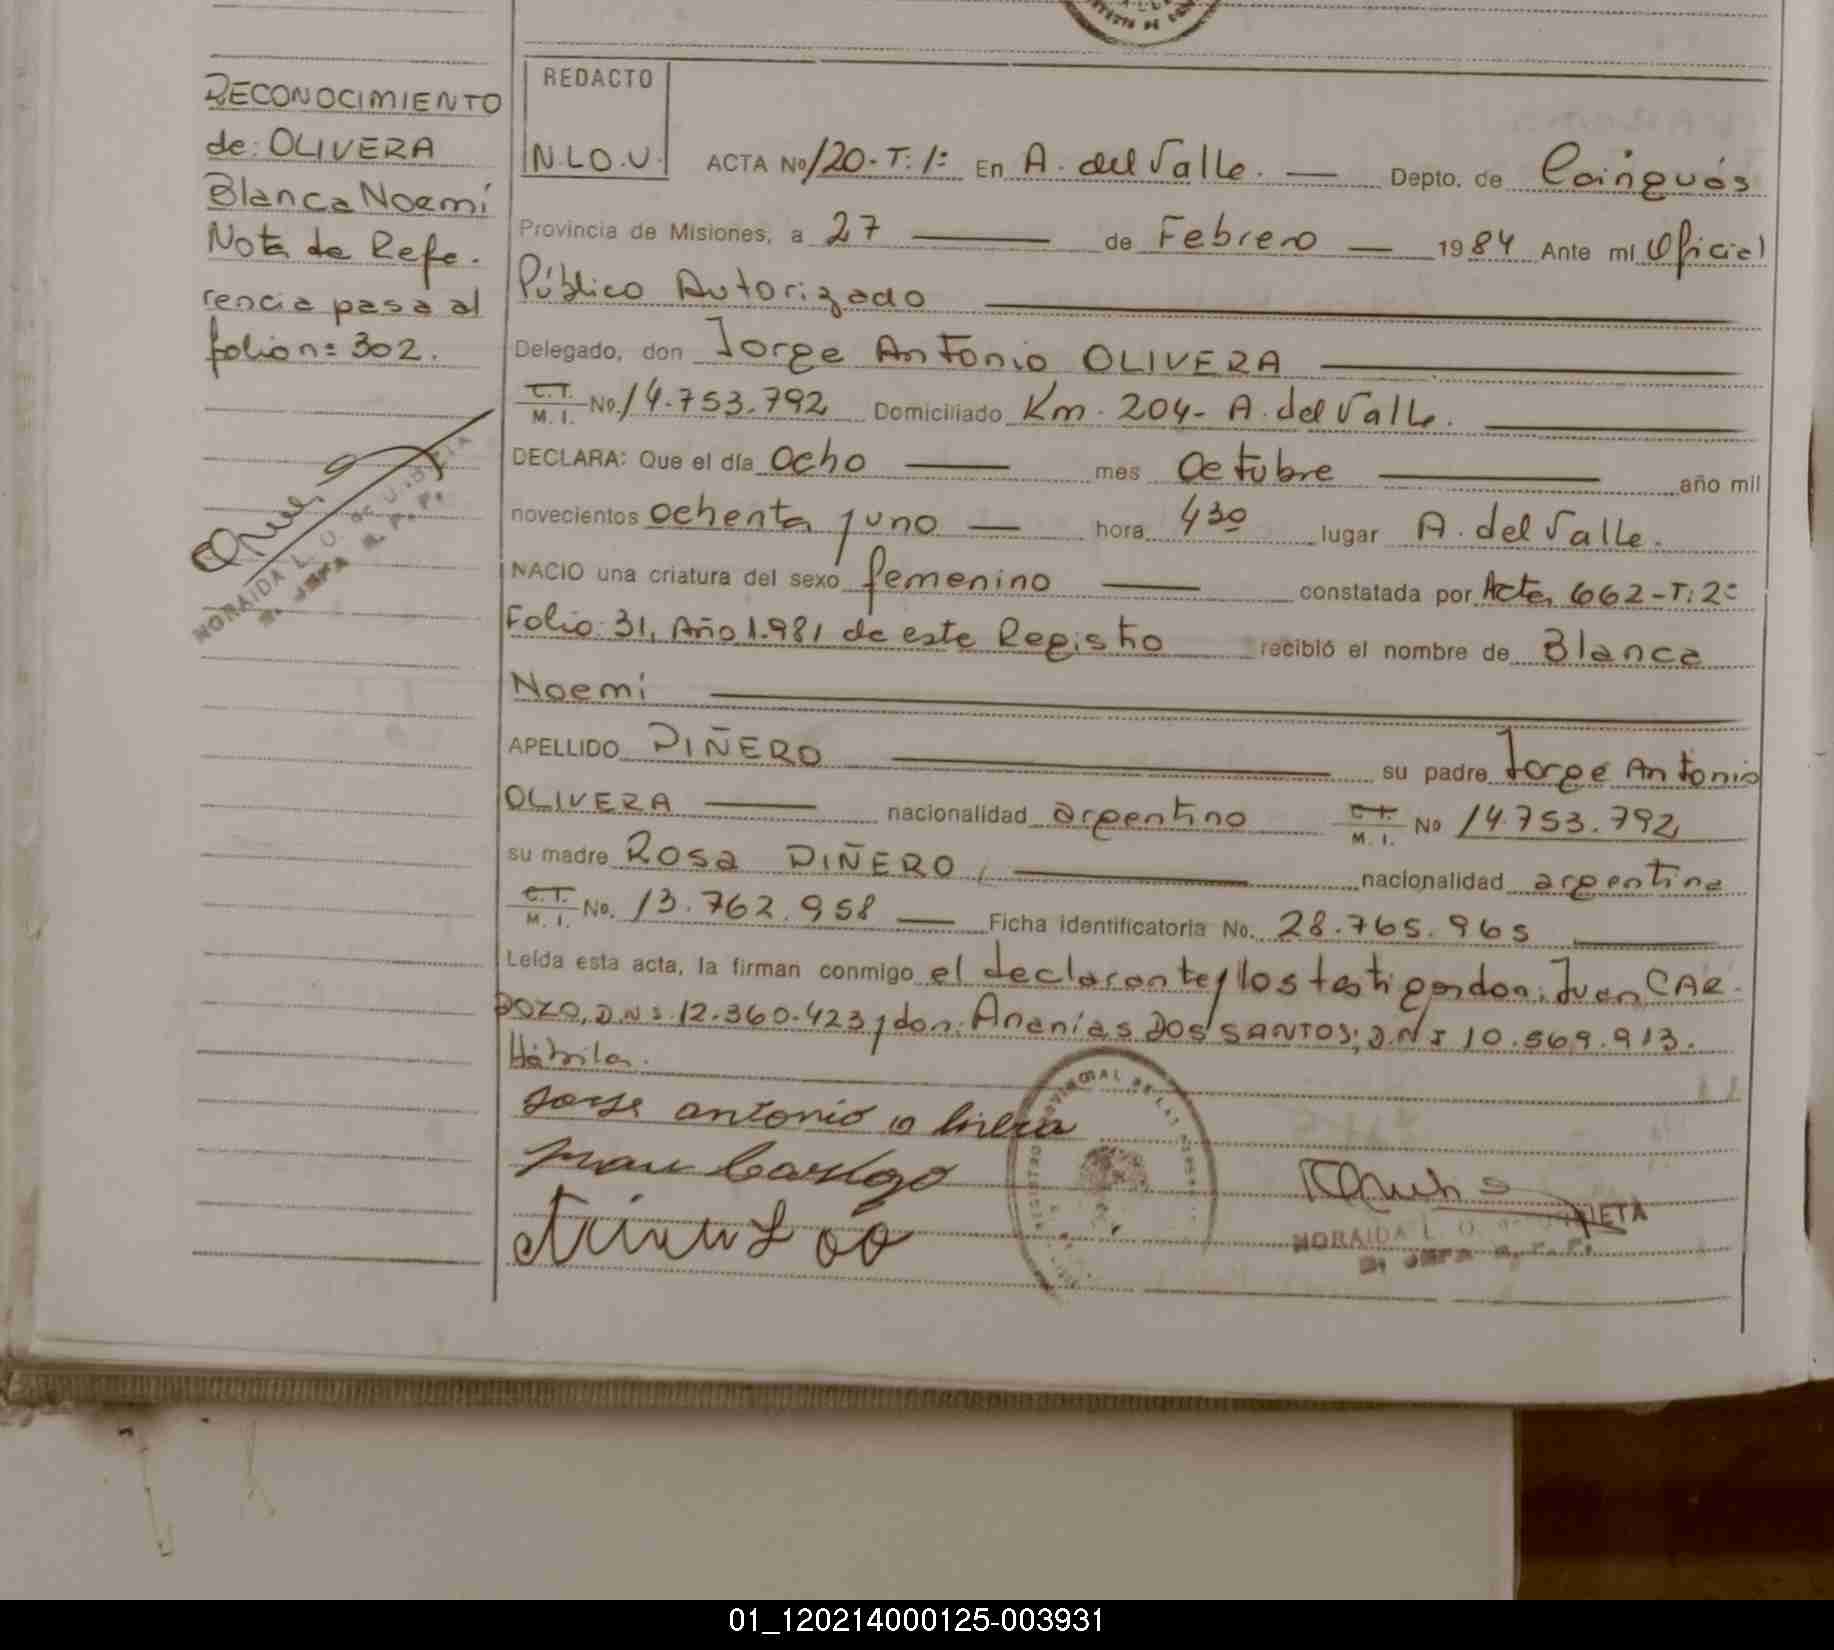 RECONOCIMIENTO
de: OLIVERA
Blanca Noemí
Nota de Refe-
rencia pasa al
folio n= 302.
NORAIDA L. O. de U
REDACTO
N.L.O.U.
ACTA No 120-T: 1: En A. del Valle. — Depto. de Cainguás
Provincia de Misiones, a 27 — de Febrero — 1984 Ante mí Oficial
Público Autorizado
Delegado, don Jorge Antonio OLIVERA
C.I. M. I. No. 14.753.792 Domiciliado Km. 204- A. del Valle.
DECLARA: Que el día ocho — mes octubre — año mil
novecientos ochenta y uno — hora 430 lugar A. del Valle.
NACIO una criatura del sexo femenino — constatada por Acta 662-T: 2º
Folio: 31, Año 1.981 de este Registro recibió el nombre de Blanca
Noemí
APELLIDO PIÑERO su padre Jorge Antonio
OLIVERA — nacionalidad argentino C.I. M. I. No 14.753.792
su madre Rosa PIÑERO, nacionalidad argentina
C.I. M. I. No. 13.762.958 — Ficha identificatoria No. 28.765.965
Leída esta acta, la firman conmigo el declarante y los testigos don: Juan CAR-
DOZO, D.N.I. 12.360.423 y don: Ananías DOS SANTOS; D.N.I 10.569.913.
Hábiles.
Jorge antonio olivera
NORAIDA L. O. de URBIETA
01_120214000125-003931